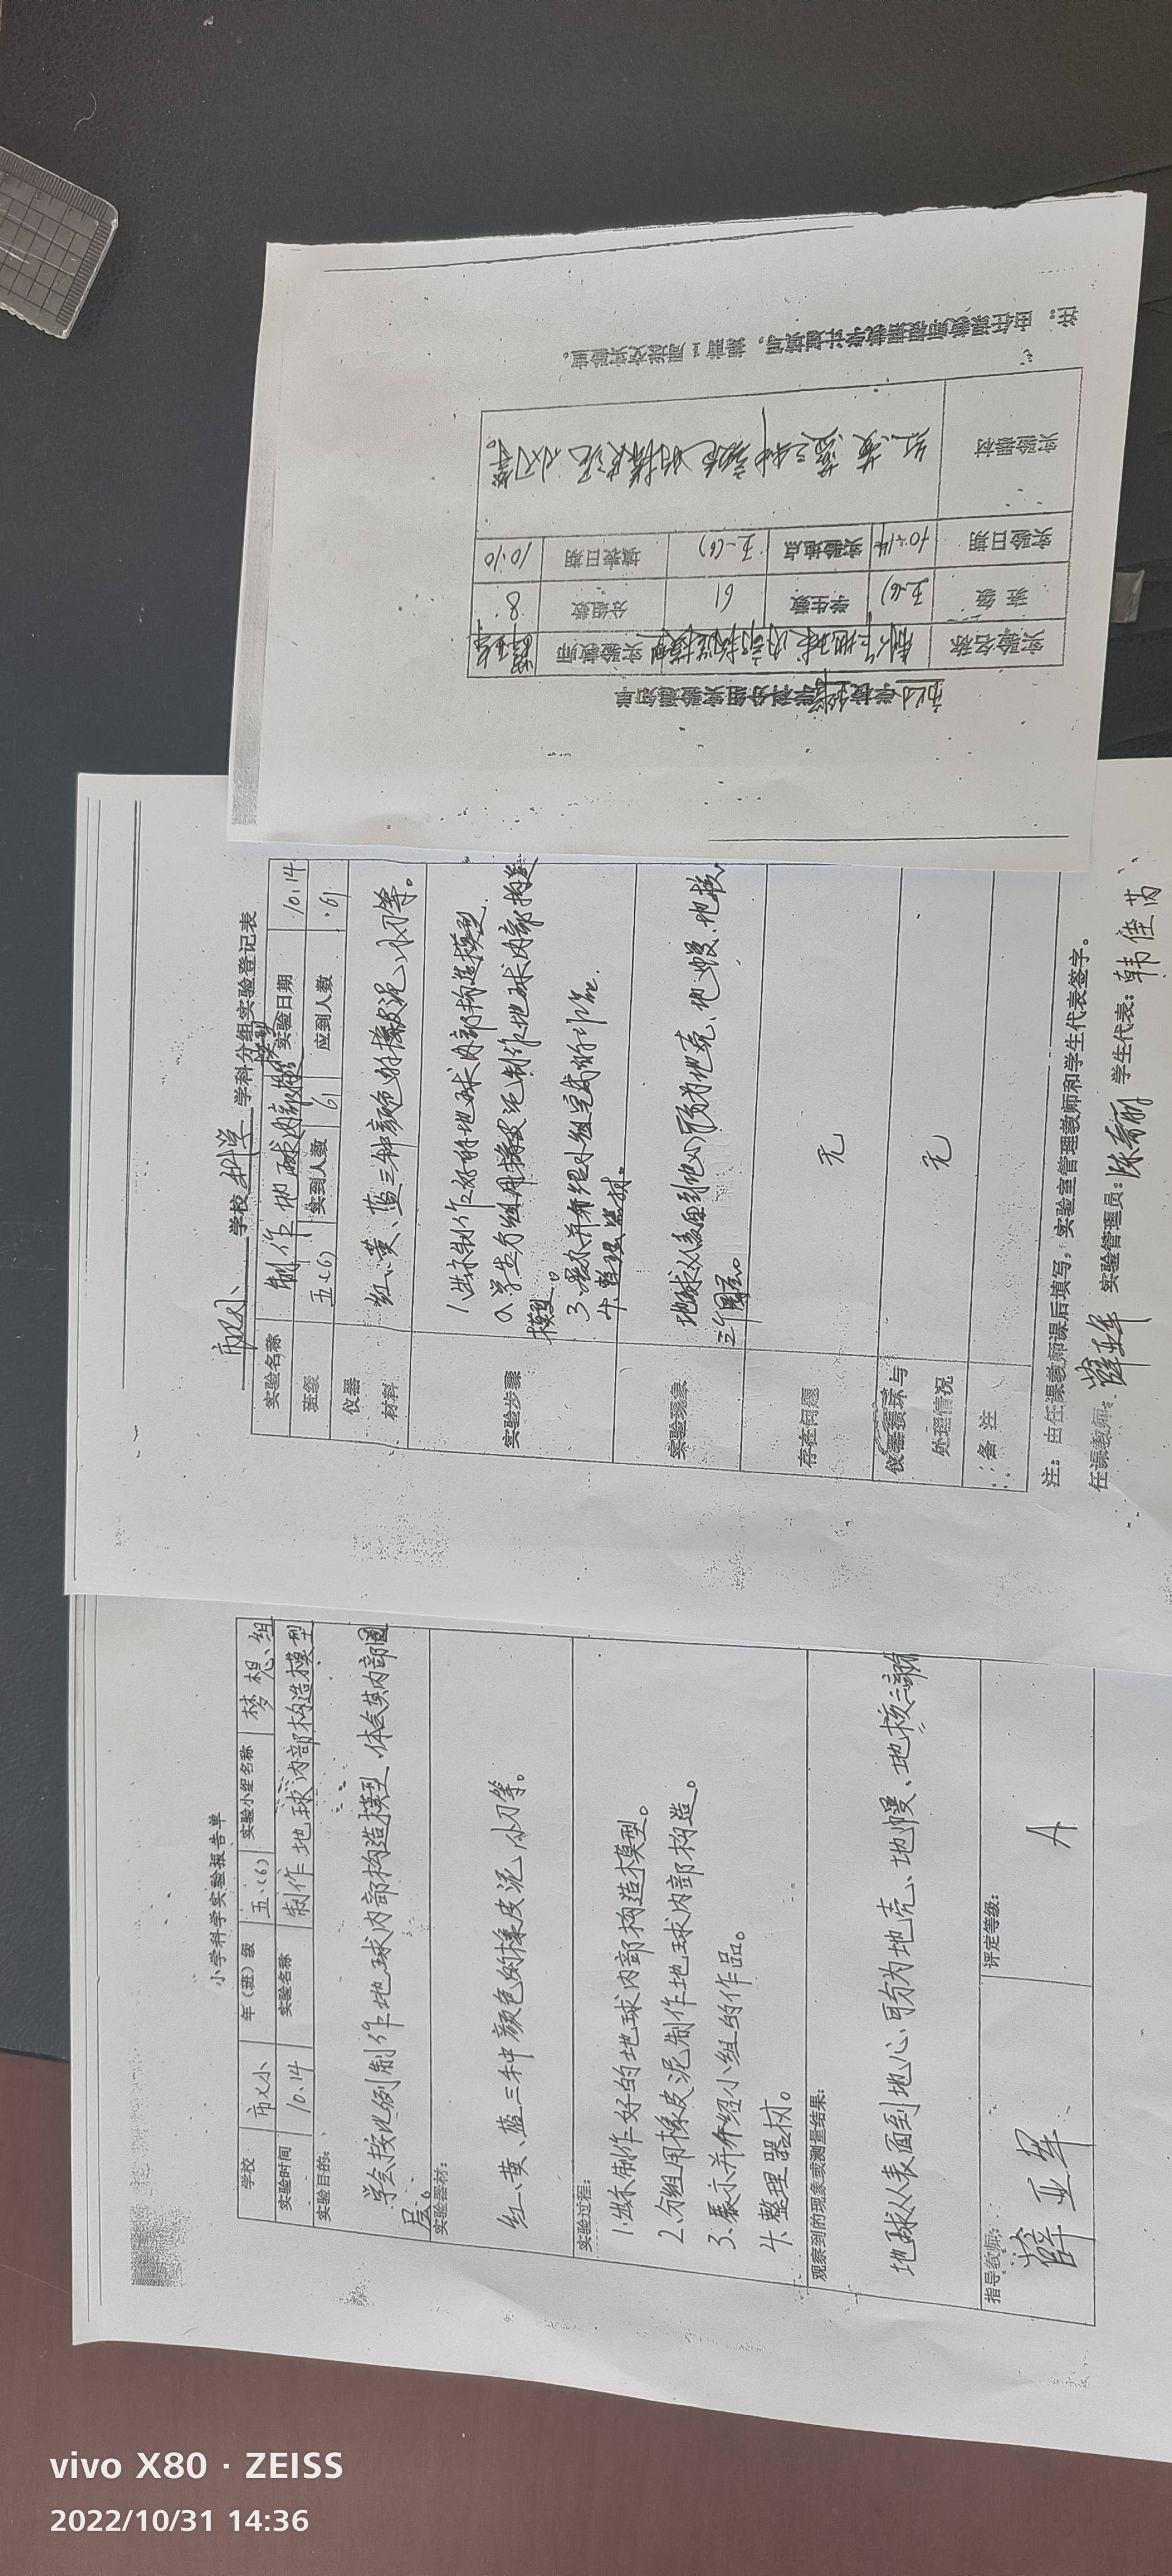 小学科学实验报告单
学校 市以小 年（班）级 五、(6) 实验小组名称 梦想组
实验时间 10.14 实验名称 制作地球内部构造模型
实验目的：
学会按比例制作地球内部构造模型,体会其内部圈
层。
实验器材：
红、黄、蓝三种颜色的橡皮泥,小刀等。
实验过程：
1.出示制作好的地球内部构造模型。
2.分组用橡皮泥制作地球内部构造。
3.展示并介绍小组的作品。
4.整理器材。
观察到的现象或测量结果：
地球从表面到地心,可分为地壳、地幔、地核三部分
指导教师： 评定等级：
薛亚军 A
学校科学学科分组实验登记表
实验名称 制作地球内部构造模型 实验日期 10.14
班级 五(6) 实到人数 61 应到人数 61
仪器
材料
红、黄、蓝三种颜色的橡皮泥,小刀等。
实验步骤
1.出示制作好的地球内部构造模型.
2.学生分组用橡皮泥制作地球内部构造
模型。
3.展示并介绍小组完成的作品.
4.整理器材。
实验现象
地球从表面到地心可分为地壳、地幔、地核
三个圈层。
存在问题 无
仪器损坏与
处理情况
无
备注
注：由任课教师课后填写，实验室管理教师和学生代表签字。
任课教师：薛亚军 实验管理员：陈秀丽 学生代表：韩佳芮
学校科学学科分组实验通知单
实验名称 制作地球内部构造模型 实验教师 薛亚军
班级 五(6) 学生数 61 分组数 8
实验日期 10.14 实验地点 五(6) 填表日期 10.10
实验器材 红黄蓝三种颜色的橡皮泥 小刀等。
注：由任课教师根据教学计划填写，提前1周送交实验室。
vivo X80 · ZEISS
2022/10/31 14:36